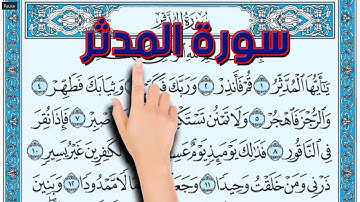 سُورَةُ المُدَّثِّر
سورة المدثر
يَٰٓأَيُّهَا ٱلْمُدَّثِّرُ ١ قُمْ فَأَنذِرْ ٢ وَرَبَّكَ وَثِيَابَكَ فَطَهِّرْ ٤
وَٱلرُّجْزَ فَٱهْجُرْ ٥ وَلَا تَمْنُن تَسْتَكْ ٧ فَإِذَا نُقِرَ
فِي ٱلنَّاقُورِ ٨ فَذَٰلِكَ يَوْمَئِذٍ يَوْمٌ ٱلْكَٰفِرِينَ غَيْرُ يَسِيرٍ ١٠
ذَرْنِي وَمَنْ خَلَقْتُ وَحِيدًا ١١ وَجَعَ مَالًا مَّمْدُودًا ١٢ وَبَنِينَ